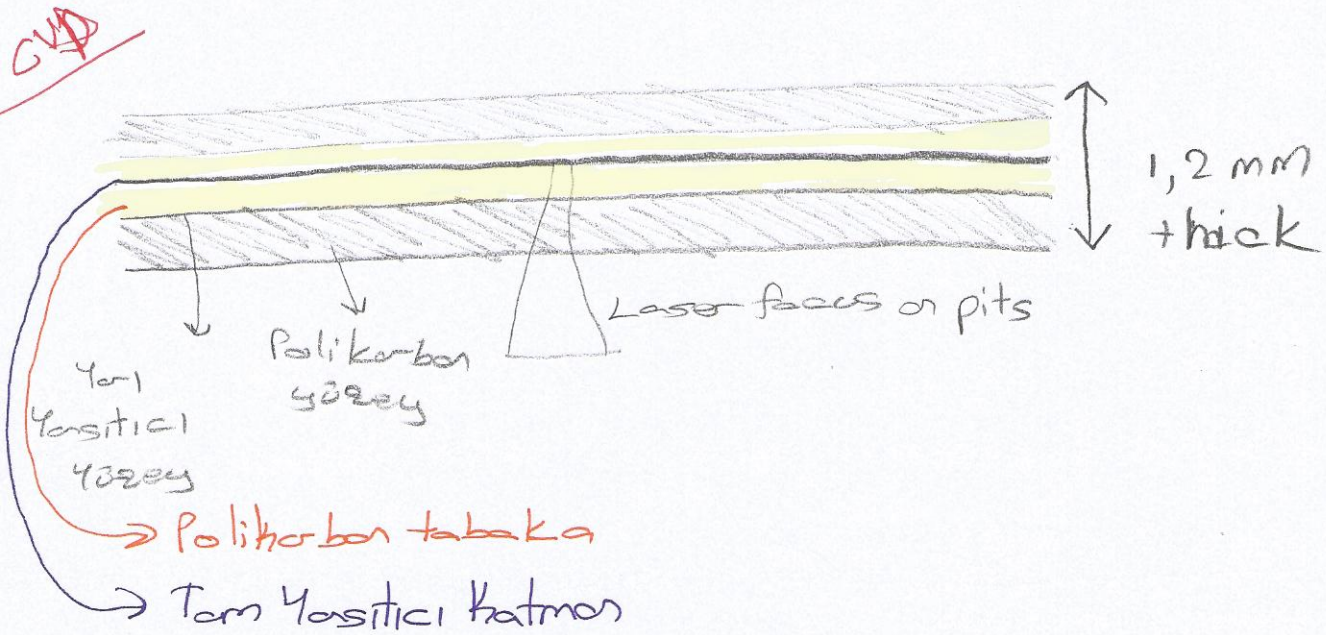 1,2 mm
thick
Laser focus on pits
Polikarbon
yüzey
Yarı
Yansıtıcı
Yüzey
Polikarbon tabaka
Tam Yansıtıcı Katman